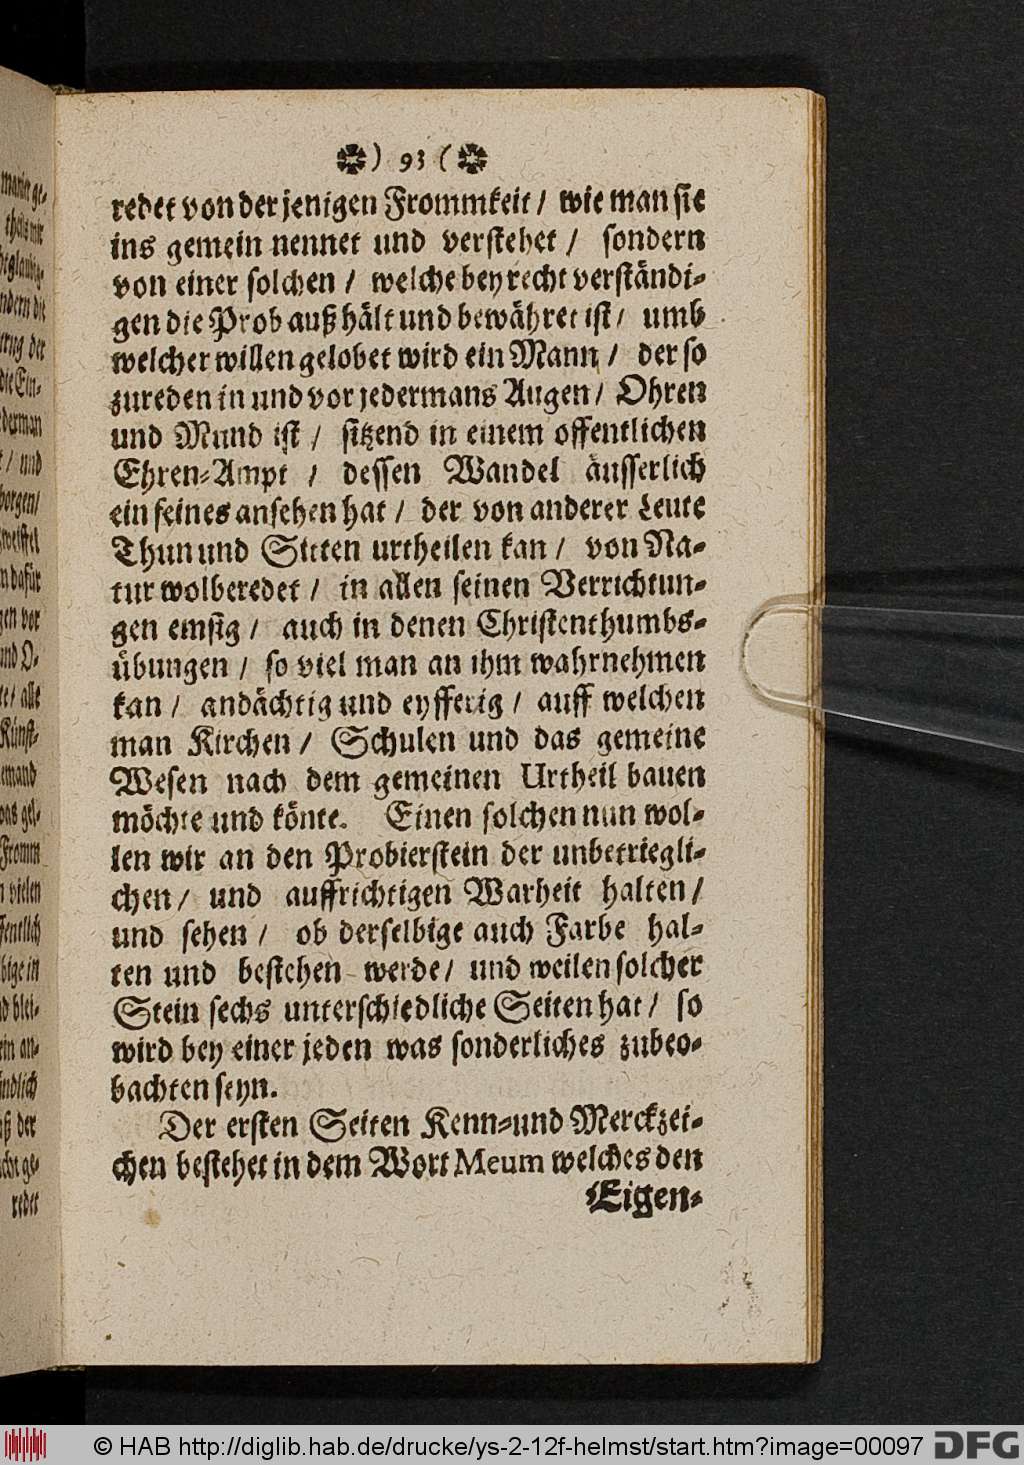 ) 93 (
redet von der jenigen Frommkeit / wie man sie
ins gemein nennet und verstehet / sondern
von einer solchen / welche bey recht verständi-
gen die Prob außhält und bewähret ist / umb
welcher willen gelobet wird ein Mann / der so
zureden in und vor jedermans Augen / Ohren
und Mund ist / sitzend in einem offentlichen
Ehren-Ampt / dessen Wandel äusserlich
ein feines ansehen hat / der von anderer Leute
Thun und Sitten urtheilen kan / von Na-
tur wolberedet / in allen seinen Verrichtun-
gen emsig / auch in denen Christenthumbs-
übungen / so viel man an ihm wahrnehmen
kan / andächtig und eyfferig / auff welchen
man Kirchen / Schulen und das gemeine
Wesen nach dem gemeinen Urtheil bauen
möchte und könte. Einen solchen nun wol-
len wir an den Probierstein der unbetriegli-
chen / und auffrichtigen Warheit halten /
und sehen / ob derselbige auch Farbe hal-
ten und bestehen werde / und weilen solcher
Stein sechs unterschiedliche Seiten hat / so
wird bey einer jeden was sonderliches zubeo-
bachten seyn.
Der ersten Seiten Kenn-und Merckzei-
chen bestehet in dem Wort Meum welches den
Eigen-
© HAB http://diglib.hab.de/drucke/ys-2-12f-helmst/start.htm?image=00097
DFG